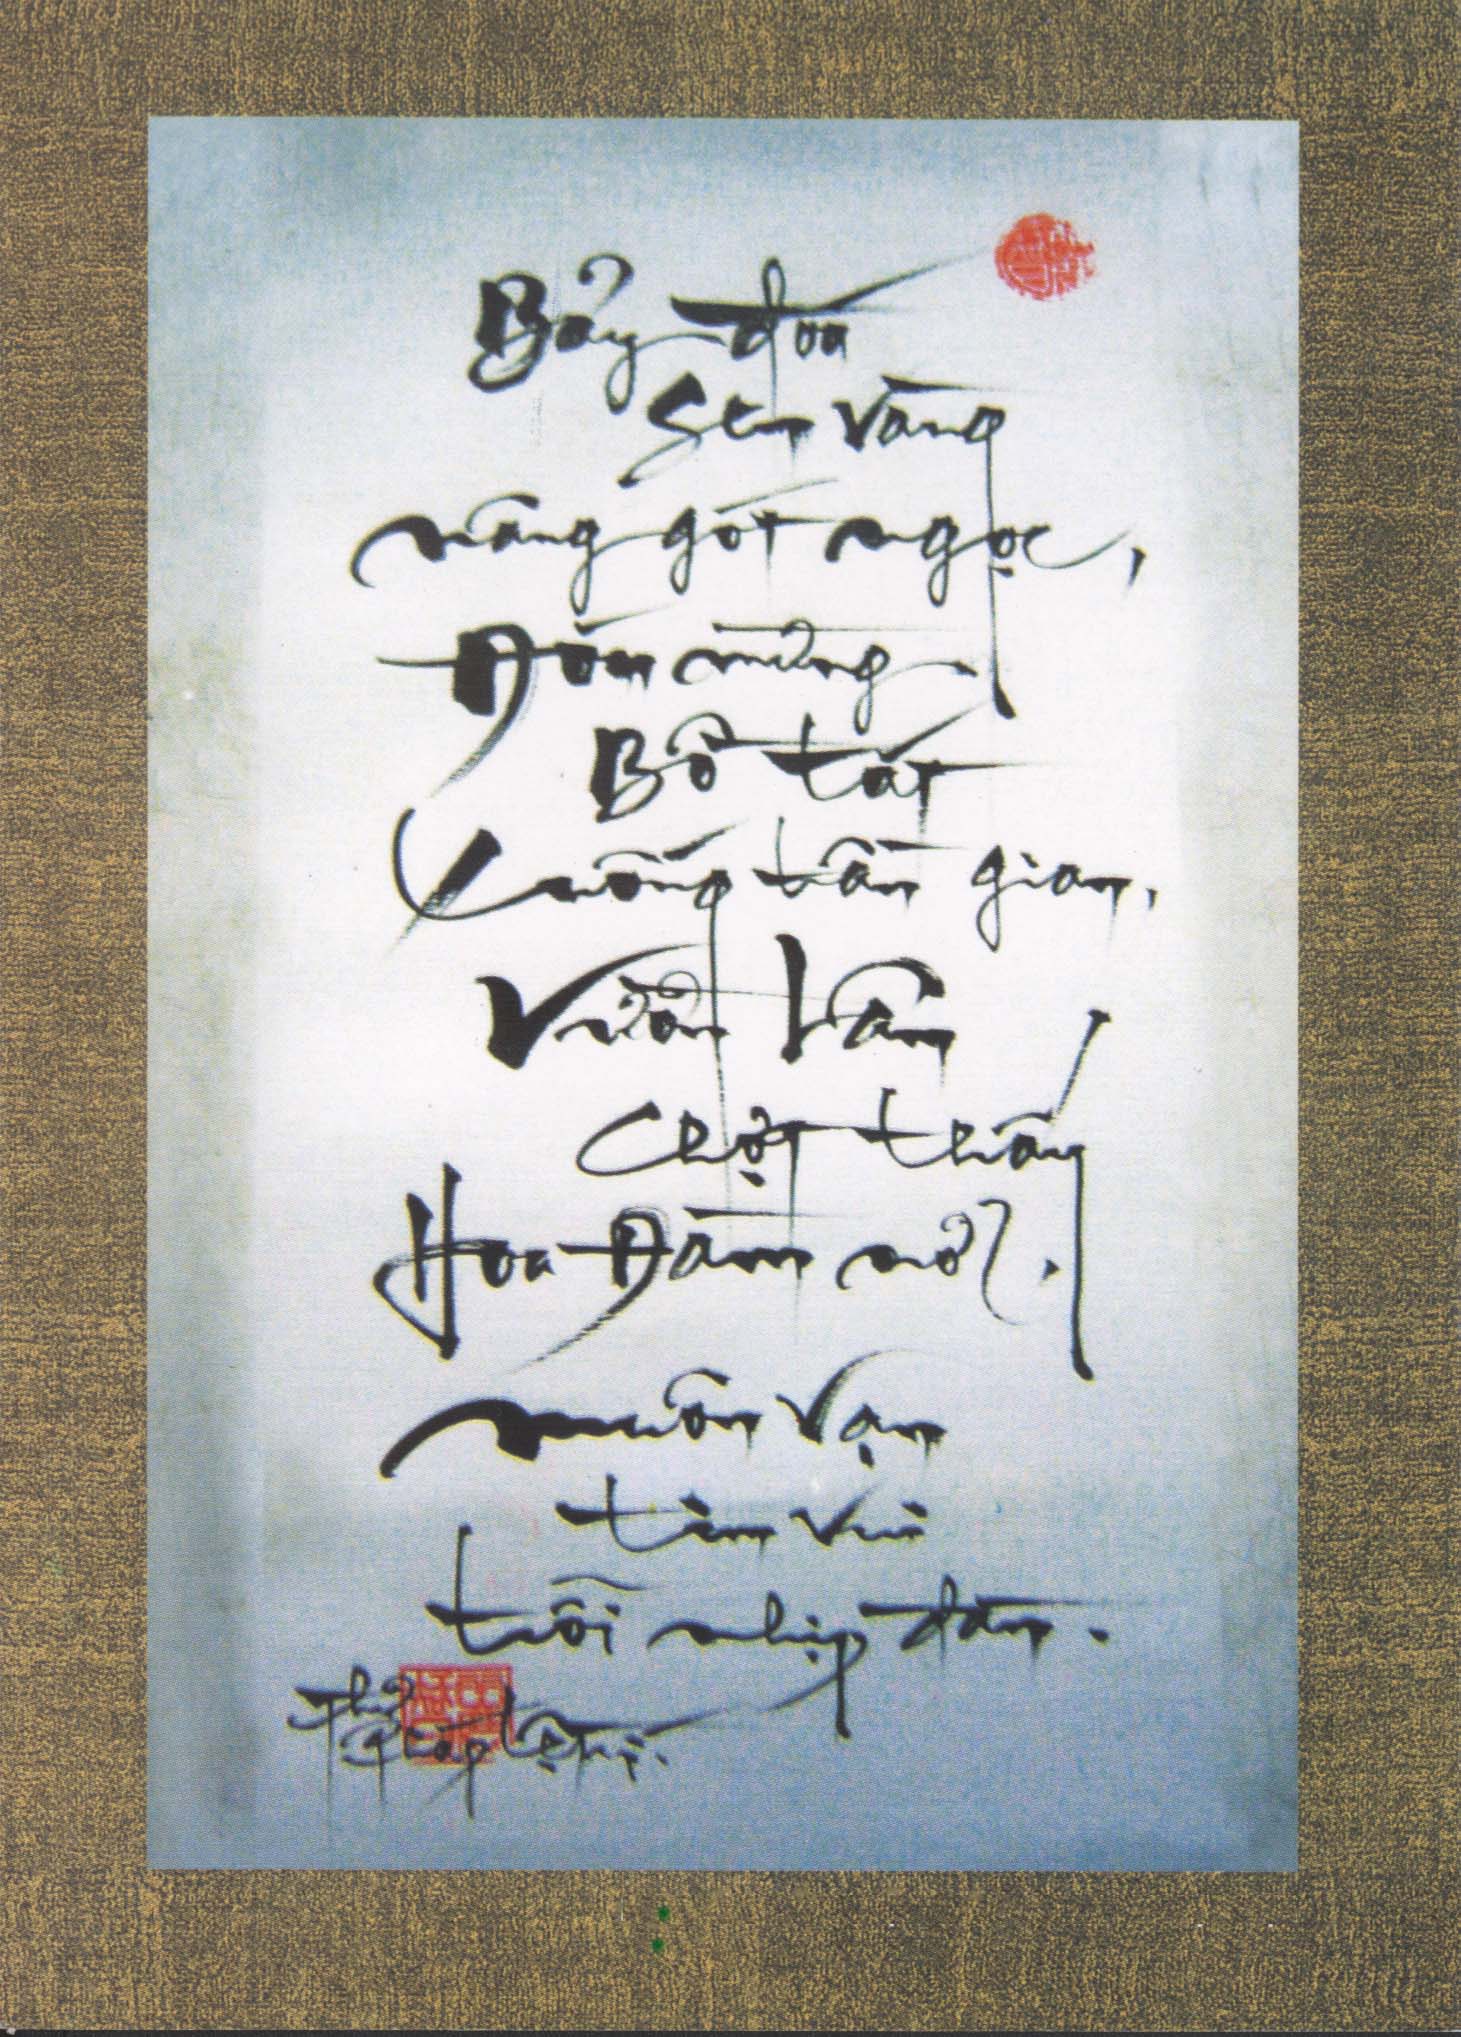 Bảy đoá
sen vàng
nâng gót ngọc,
Đón mừng
Bồ tát
Xuống trần gian.
Vườn Lâm
Chợt thấy
Hoa Đàm nở.
muôn vạn
tim vui
trỗi nhịp đàn.